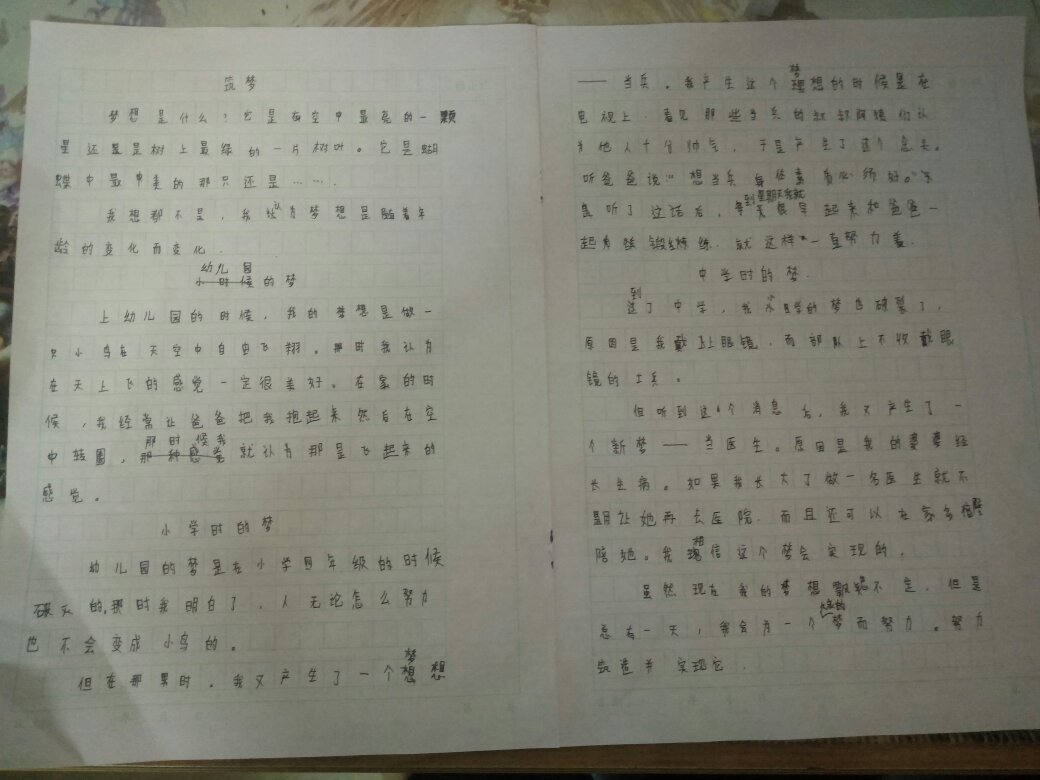 筑梦
梦想是什么？它是夜空中最亮的一颗
星还是是树上最绿的一片树叶。它是蝴
蝶中最美的那只还是……．
我想都不是，我认为梦想是随着年
龄的变化而变化．
幼儿园
小时候的梦
上幼儿园的时候，我的梦想是做一
只小鸟在天空中自由飞翔。那时我认为
在天上飞的感觉一定很美好。在家的时
候，我经常让爸爸把我抱起来然后在空
中转圈，那时候我就认为那是飞起来的
感觉。
小学时的梦
幼儿园的梦是在小学四年级的时候
破灭的，那时我明白了，人无论怎么努力
也不会变成小鸟的。
但在那累时，我又产生了一个梦想
——当兵。我产生这个梦想的时候是在
电视上，看见那些当兵的叔叔阿姨们认
为他人十分帅气，于是产生了这个念头。
听爸爸说“想当兵身体素质必须好。”于
是听了这话后，每到星期天我就很早起来和爸爸一
起去锻炼，就这样一直努力着．
中学时的梦．
到了中学，我小学的梦也破裂了，
原因是我戴上眼镜，而部队上不收戴眼
镜的士兵。
但听到这个消息后，我又产生了一
个新梦——当医生。原因是我的婆婆经
长生病。如果我长大了做一名医生就不
用让她再去医院．而且还可以在家多
陪她。我相信这个梦会实现的．
虽然现在我的梦想不定，但是
总有一天，我会为一个长久的梦而努力。努力
筑造并实现它．